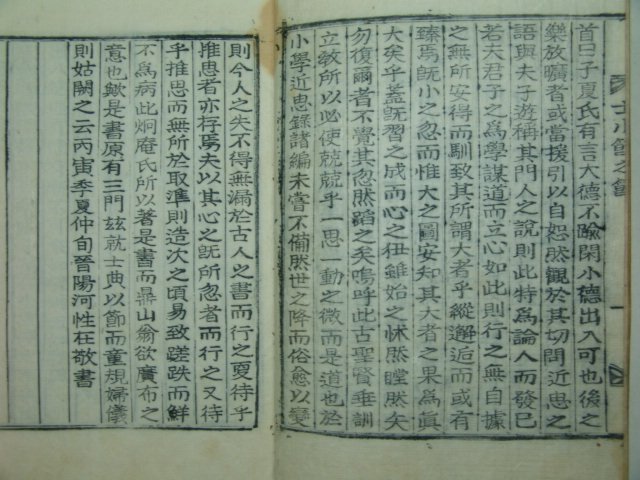 首曰子夏氏有言大德不踰閑小德出入可也後之
樂放曠者或嘗援引以自恕然觀於其切問近思之
語與夫子遊稱其門人之說則此特爲論人而發已
若夫君子之爲學謀道而立心如此則行之無自據
之無所安得而馴致其所謂大者乎縱邂逅而或有
臻焉旣小之忽而惟大之圖安知其大者之果爲眞
大矣乎蓋旣習之成而心之狃雖始之怵然瞠然矣
勿復爾者不覺其忽然蹈之矣嗚呼此古聖賢垂訓
立敎所以必使兢兢乎一思一動之微而是道也於
小學近思錄諸編未嘗不備然世之降而俗愈以變
則今人之失不得無漏於古人之書而行之夏待乎
推思者亦存焉夫以其心之旣所忽者而行之又待
乎推思而無所於取準則造次之頃易致蹉跌而鮮
不爲病此炯庵氏所以著是書而鼎山翁欲廣布之
意也歟是書原有三門玆就士典以節而童規婦儀
則姑闕之云丙寅季夏仲旬晉陽河性在敬書
士小節之節
一